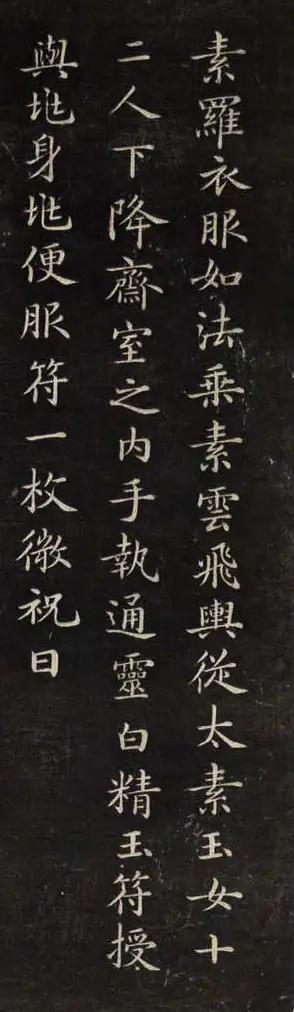 素羅衣服如法乗素雲飛輿從太素玉女十
二人下降齋室之内手執通靈白精玉符授
與𡉟身𡉟便服符一枚微祝曰